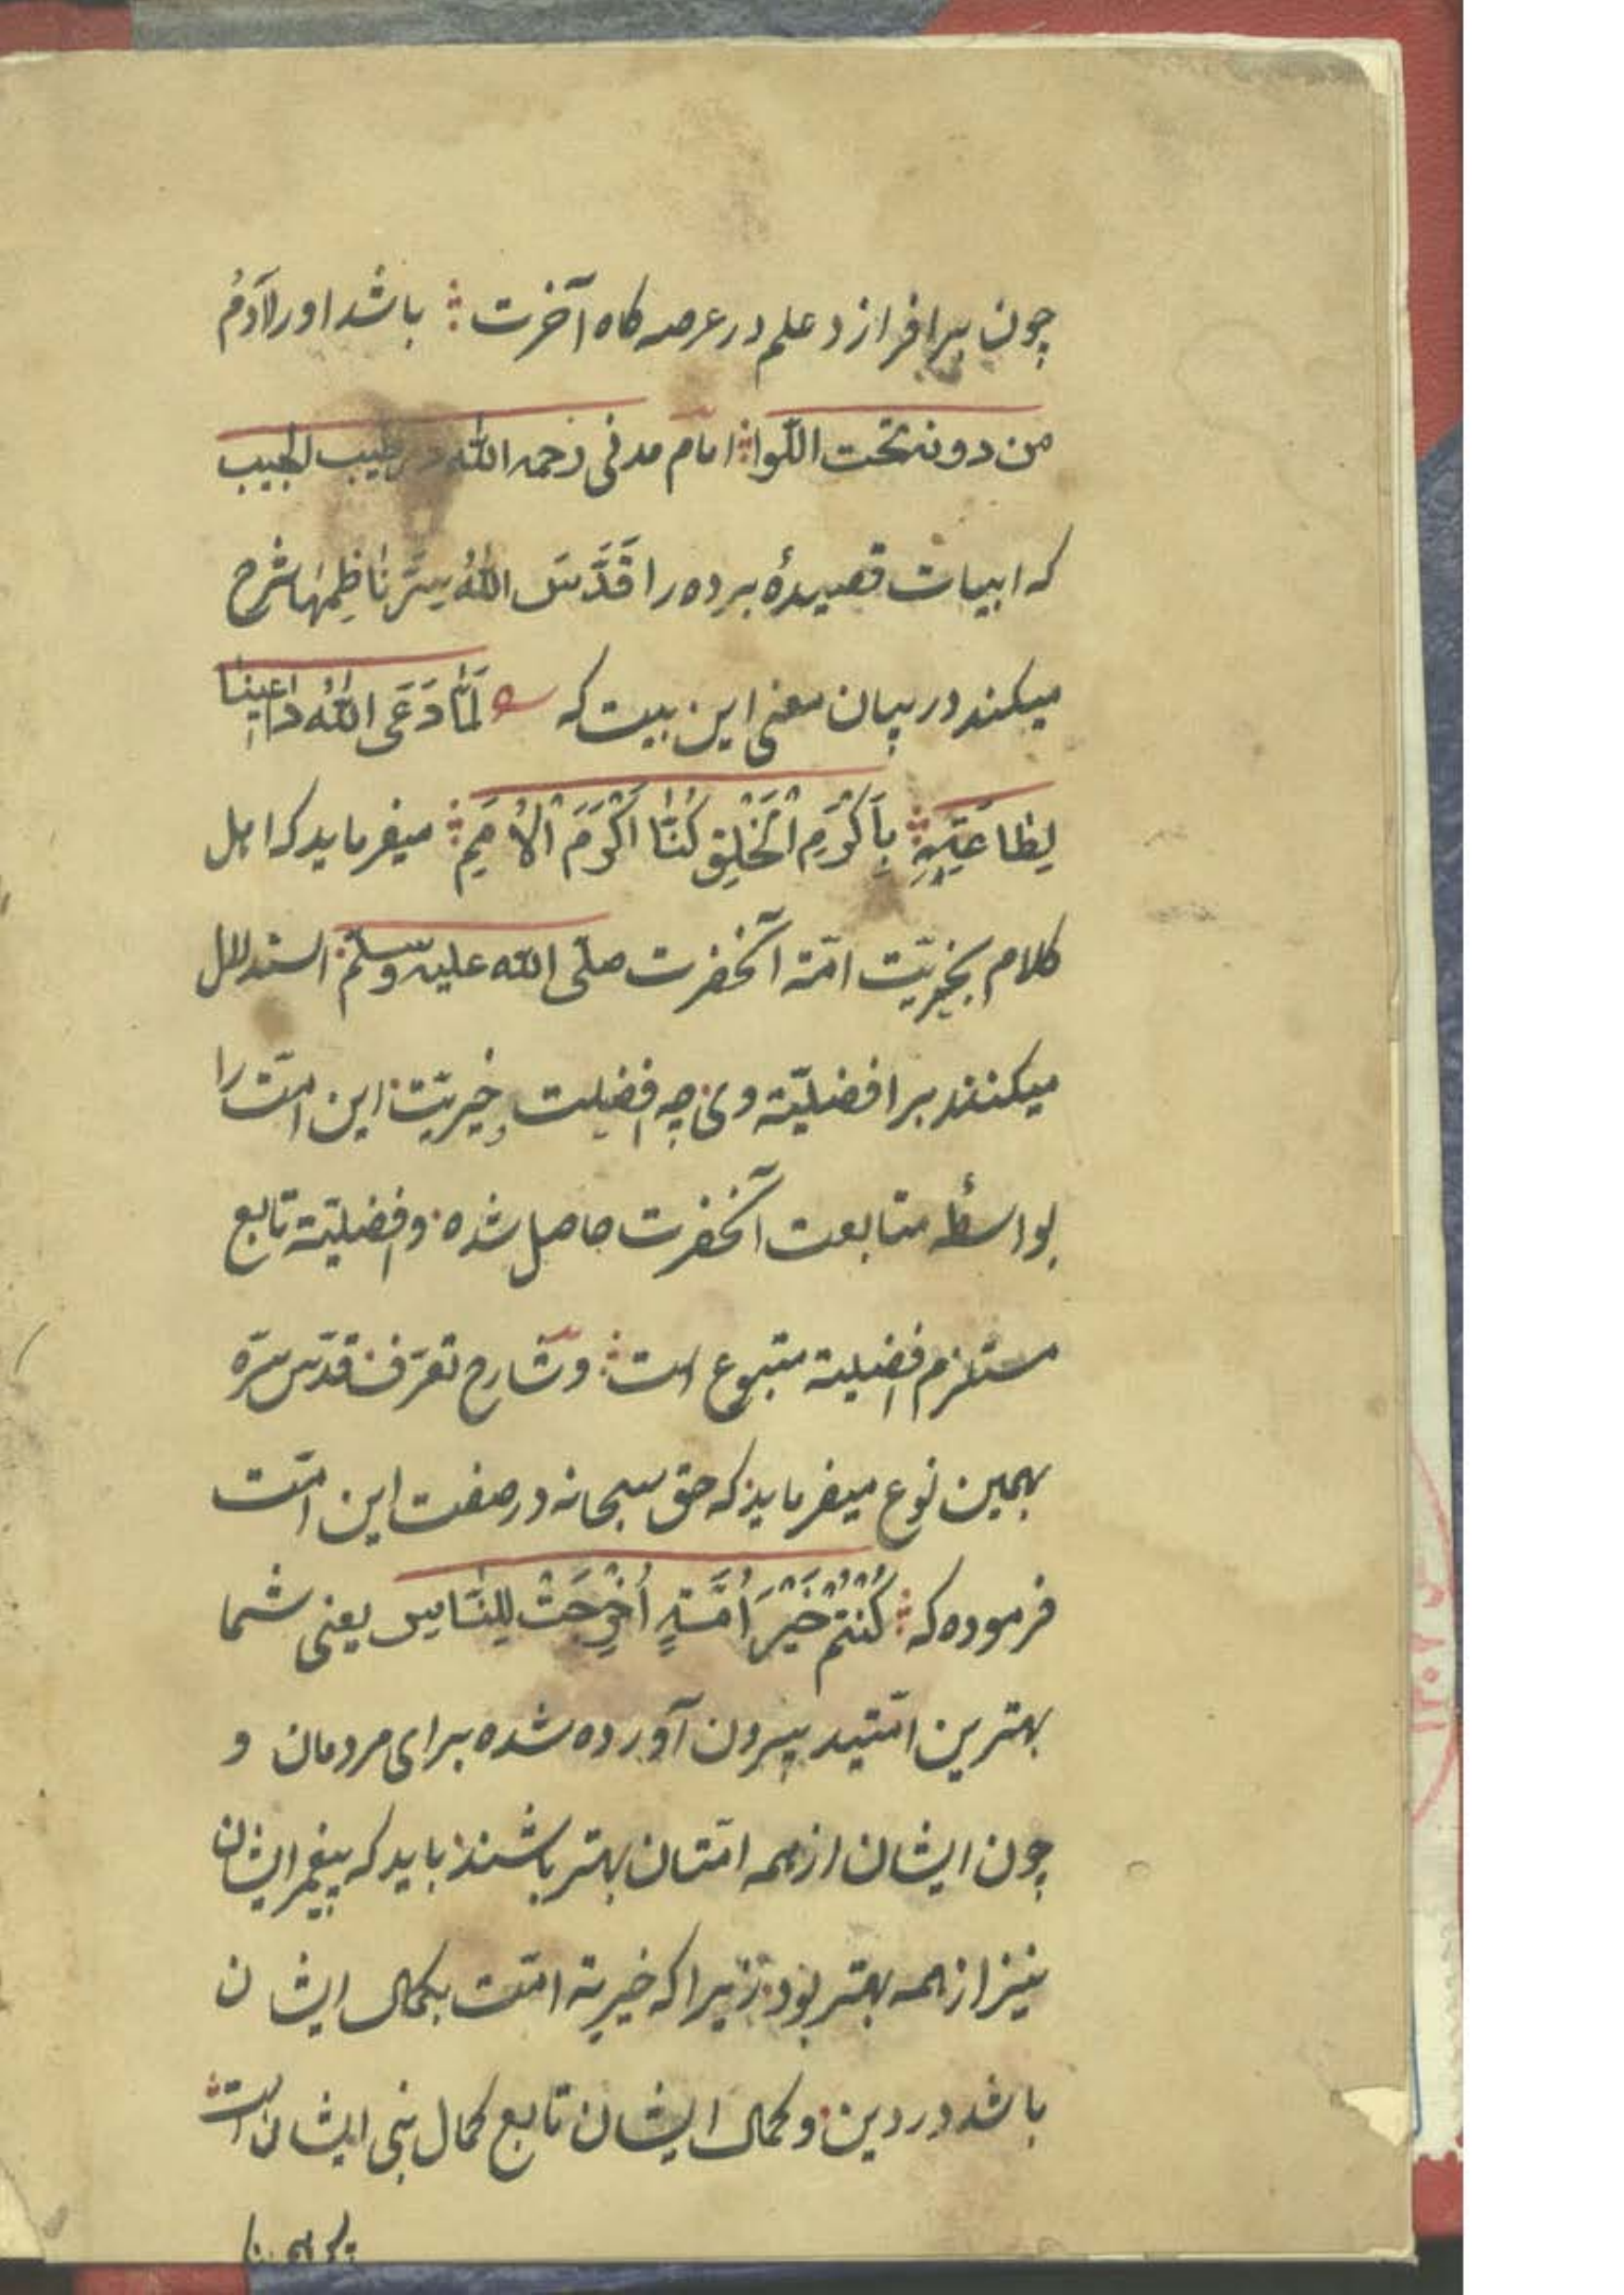 چون برافرازد علم در عرصه کاه آخرت ؞ باشد اورا آدمُ
من دونه تحت اللّوا ؞ امام مدنی رحمه الله در طیب الحبیب
که ابیات قصیدهٔ برده را قَدَّسَ اللّٰهُ سِرَّ نَاظِمِهَا شرح
میکند در بیان معنی این بیت که لَمَّا دَعَی اللّٰهُ دَاعِینَا
لِطَاعَتِهِ ؞ بِاَکْرَمِ الْخَلْقِ کُنَّا اَکْرَمَ الْاُمَمِ ؞ میفرماید که اهل
کلام بخیریّت امّة آنحضرت صلّی الله علیه وسلّم استدلال
میکنند بر افضلیّة وی چه افضلیت و خیریّت این امّت را
بواسطهٔ متابعت آنحضرت حاصل شده و افضلیّة تابع
مستلزم افضلیة متبوع است ؞ و شارح تعرّف قدّس سرّه
بهمین نوع میفرماید که حق سبحانه در صفت این امّت
فرموده که ؞ کُنْتُمْ خَیْرَ اُمَّةٍ اُخْرِجَتْ لِلنَّاسِ یعنی شما
بهترین امّتید بیرون آورده شده برای مردمان و
چون ایشان از همه امّتان بهتر باشند باید که پیغمبر ایشان
نیز از همه بهتر بود زیرا که خیریة امّت بکمال ایشان
باشد در دین و کمال ایشان تابع کمال نبی ایشان است ؞